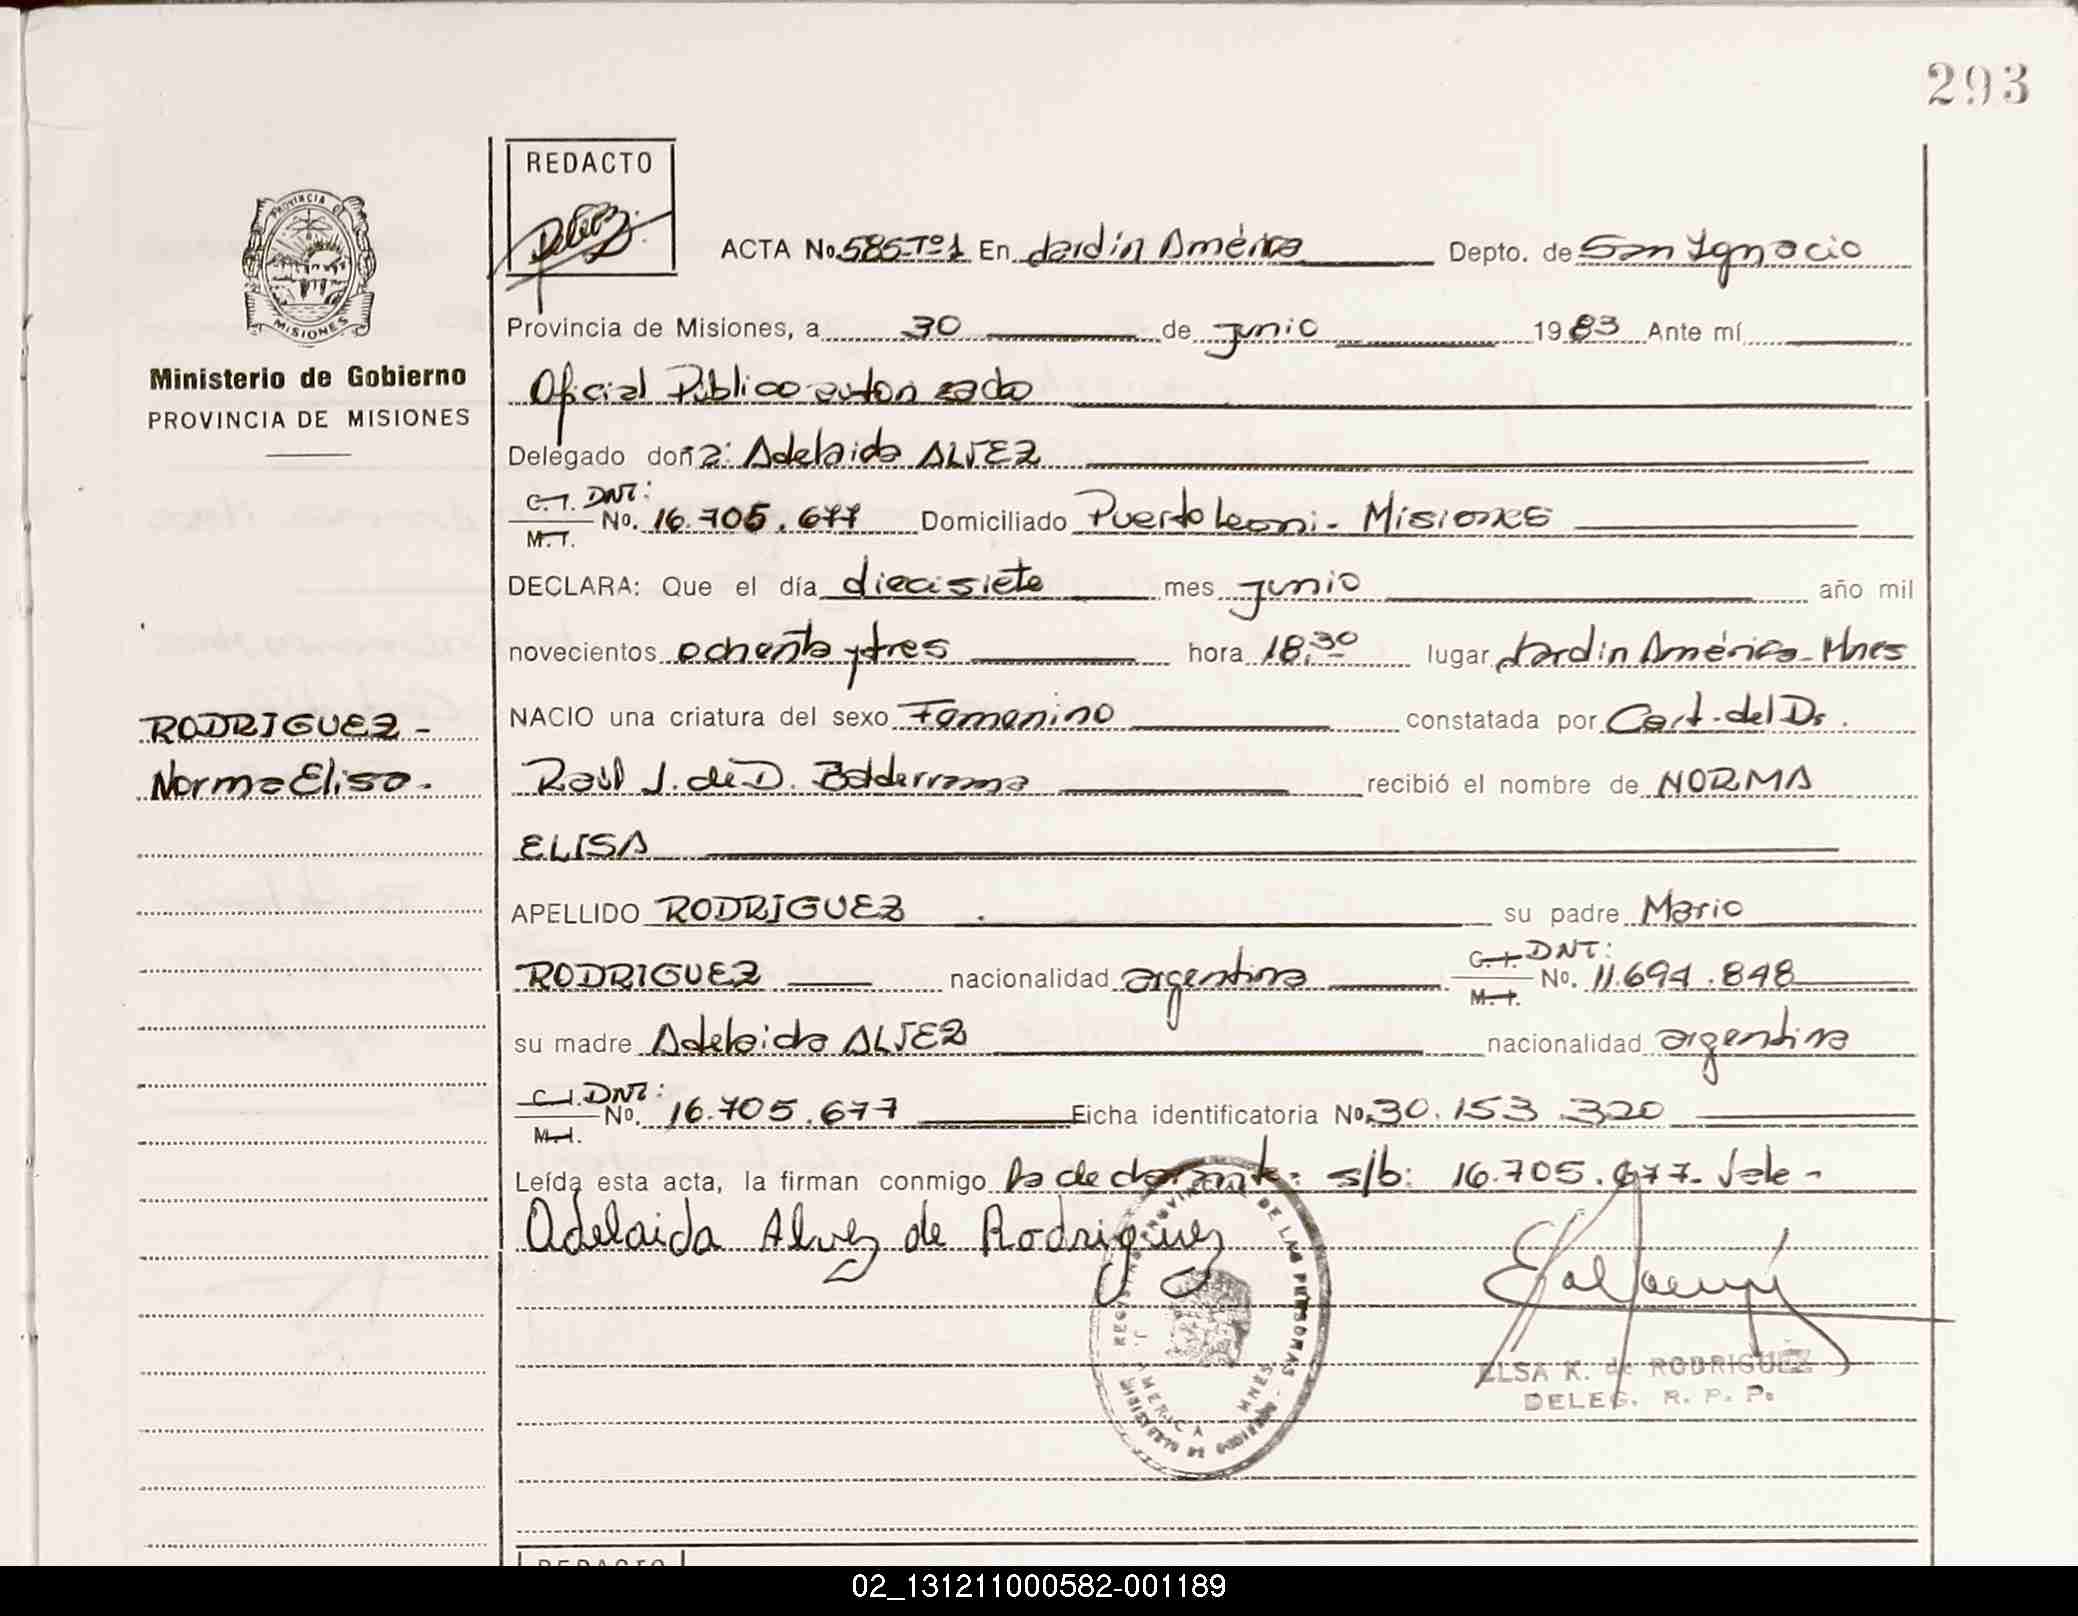 293
REDACTO
PROVINCIA DE
MISIONES
ACTA No. 585-Tº1 En Jardín América Depto. de San Ignacio
Provincia de Misiones, a 30 de junio 1983 Ante mí
Ministerio de Gobierno
PROVINCIA DE MISIONES
Oficial Público autorizado
Delegado doña: Adelaida ALVEZ
C.I. DNI:
M.I. No. 16.705.677 Domiciliado Puerto Leoni - Misiones
DECLARA: Que el día diecisiete mes junio año mil
novecientos ochenta y tres hora 18,30 lugar Jardín América - Mnes
RODRIGUEZ -
Norma Elisa.
NACIO una criatura del sexo Femenino constatada por Cert. del Dr.
Raúl J. de D. Balderrama recibió el nombre de NORMA
ELISA
APELLIDO RODRIGUEZ su padre Mario
RODRIGUEZ nacionalidad argentina C.I. DNI: M.I. No. 11.694.848
su madre Adelaida ALVEZ nacionalidad argentina
C.I. DNI:
M.I. No. 16.705.677 Ficha identificatoria No. 30.153.320
Leída esta acta, la firman conmigo la declarante. s/b: 16.705.677. Vale -
Adelaida Alvez de Rodriguez
DE LAS PERSONAS
AMERICA MNES
ELSA K. de RODRIGUEZ
DELEG. R. P. P.
REDACTO
02_131211000582-001189